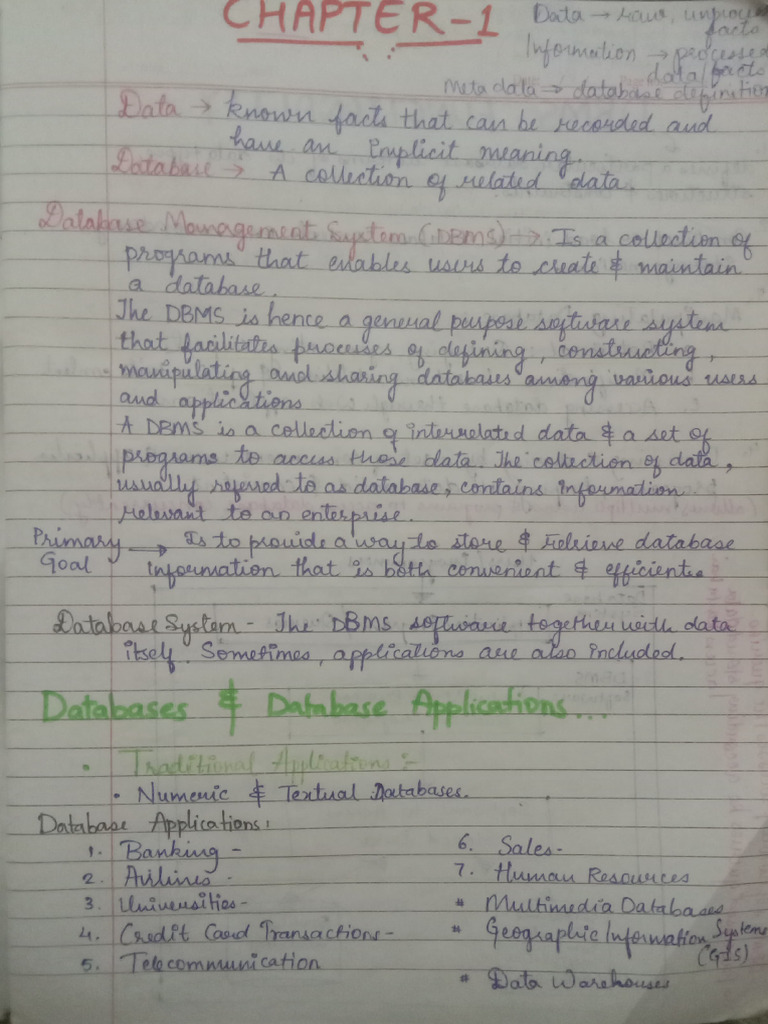 CHAPTER-1
Data → raw, unproce
facts
Information → processed
data/facts
Meta data → database definition
Data → known facts that can be recorded and
have an implicit meaning.
Database → A collection of related data
Database Management System (DBMS) → Is a collection of
programs that enables users to create & maintain
a database.
The DBMS is hence a general purpose software system
that facilitates processes of defining, constructing,
manipulating and sharing databases among various users
and applications
A DBMS is a collection of interrelated data & a set of
programs to access those data. The collection of data,
usually referred to as database, contains information
relevant to an enterprise.
Primary Goal → Is to provide a way to store & retrieve database
information that is both convenient & efficient.
Database System - The DBMS software together with data
itself. Sometimes, applications are also included.
Databases & Database Applications...
• Traditional Applications :-
• Numeric & Textual Databases.
Database Applications:
1. Banking -
2. Airlines -
3. Universities -
4. Credit Card Transactions -
5. Telecommunication
6. Sales -
7. Human Resources
* Multimedia Databases
* Geographic Information Systems (GIS)
* Data Warehouses